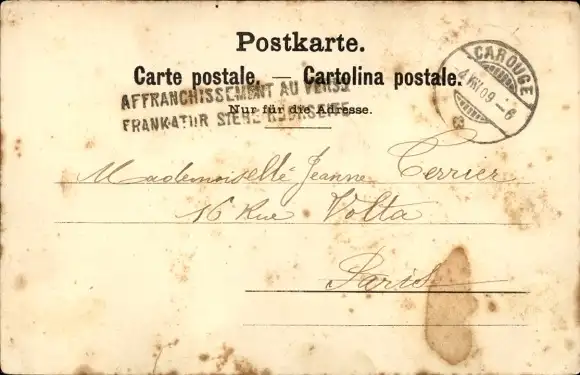 Postkarte.
Carte postale. — Cartolina postale.
AFFRANCHISSEMENT AU VERSO
Nur für die Adresse.
FRANKATUR SIEHE RÜCKSEITE
CAROUGE
09 - 6
Mademoiselle Jeanne Terrier
16 Rue Volta
Paris